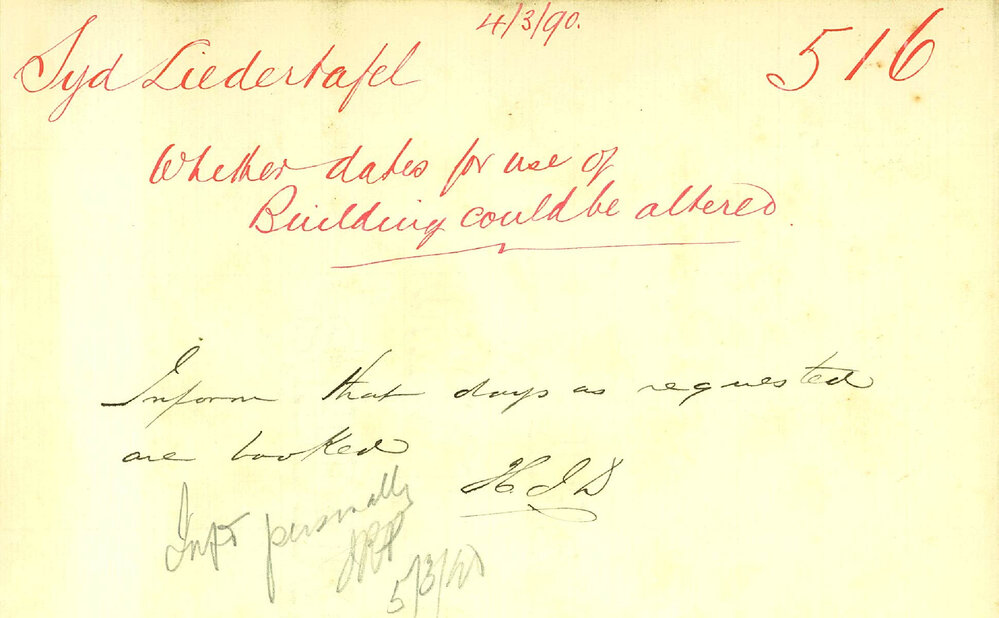 4/3/90.
Syd Liedertafel 516
Whether dates for use of
Building could be altered
Inform that days as requested
are booked
H J D
Infd personally
5/3/90